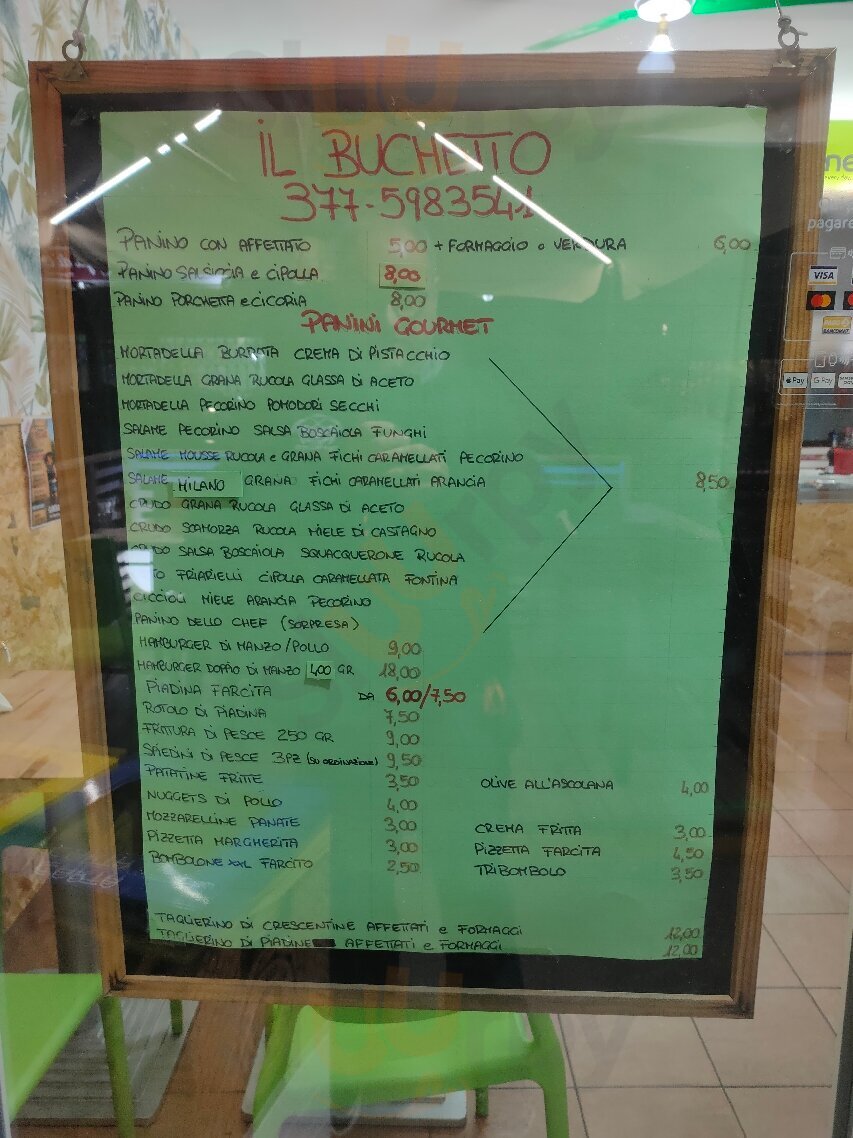 IL BUCHETTO
377-5983541
PANINO CON AFFETTATO 5,00 + FORMAGGIO O VERDURA 6,00
PANINO SALSICCIA e CIPOLLA 8,00
PANINO PORCHETTA e CICORIA 8,00
PANINI GOURMET
MORTADELLA BURRATA CREMA DI PISTACCHIO
MORTADELLA GRANA RUCOLA GLASSA DI ACETO
MORTADELLA PECORINO POMODORI SECCHI
SALAME PECORINO SALSA BOSCAIOLA FUNGHI
SALAME MOUSSE RUCOLA e GRANA FICHI CARAMELLATI PECORINO
SALAME MILANO GRANA FICHI CARAMELLATI ARANCIA 8,50
CRUDO GRANA RUCOLA GLASSA DI ACETO
CRUDO SCAMORZA RUCOLA MIELE DI CASTAGNO
CRUDO SALSA BOSCAIOLA SQUACQUERONE RUCOLA
FRIARIELLI CIPOLLA CARAMELLATA FONTINA
CICCIOLI MIELE ARANCIA PECORINO
PANINO DELLO CHEF (SORPRESA)
HAMBURGER DI MANZO/POLLO 9,00
HAMBURGER DOPPIO DI MANZO 400 GR 18,00
PIADINA FARCITA DA 6,00/7,50
ROTOLO DI PIADINA 7,50
FRITTURA DI PESCE 250 GR 9,00
SPIEDINI DI PESCE 3PZ (SU ORDINAZIONE) 9,50
PATATINE FRITTE 3,50 OLIVE ALL'ASCOLANA 4,00
NUGGETS DI POLLO 4,00
MOZZARELLINE PANATE 3,00 CREMA FRITTA 3,00
PIZZETTA MARGHERITA 3,00 PIZZETTA FARCITA 4,50
BOMBOLONE XXL FARCITO 2,50 TRIBOMBOLO 3,50
TAGLIERINO DI CRESCENTINE AFFETTATI e FORMAGGI 12,00
TAGLIERINO DI PIADINE AFFETTATI e FORMAGGI 12,00
pagare
VISA
BANCOMAT
Pay
G Pay